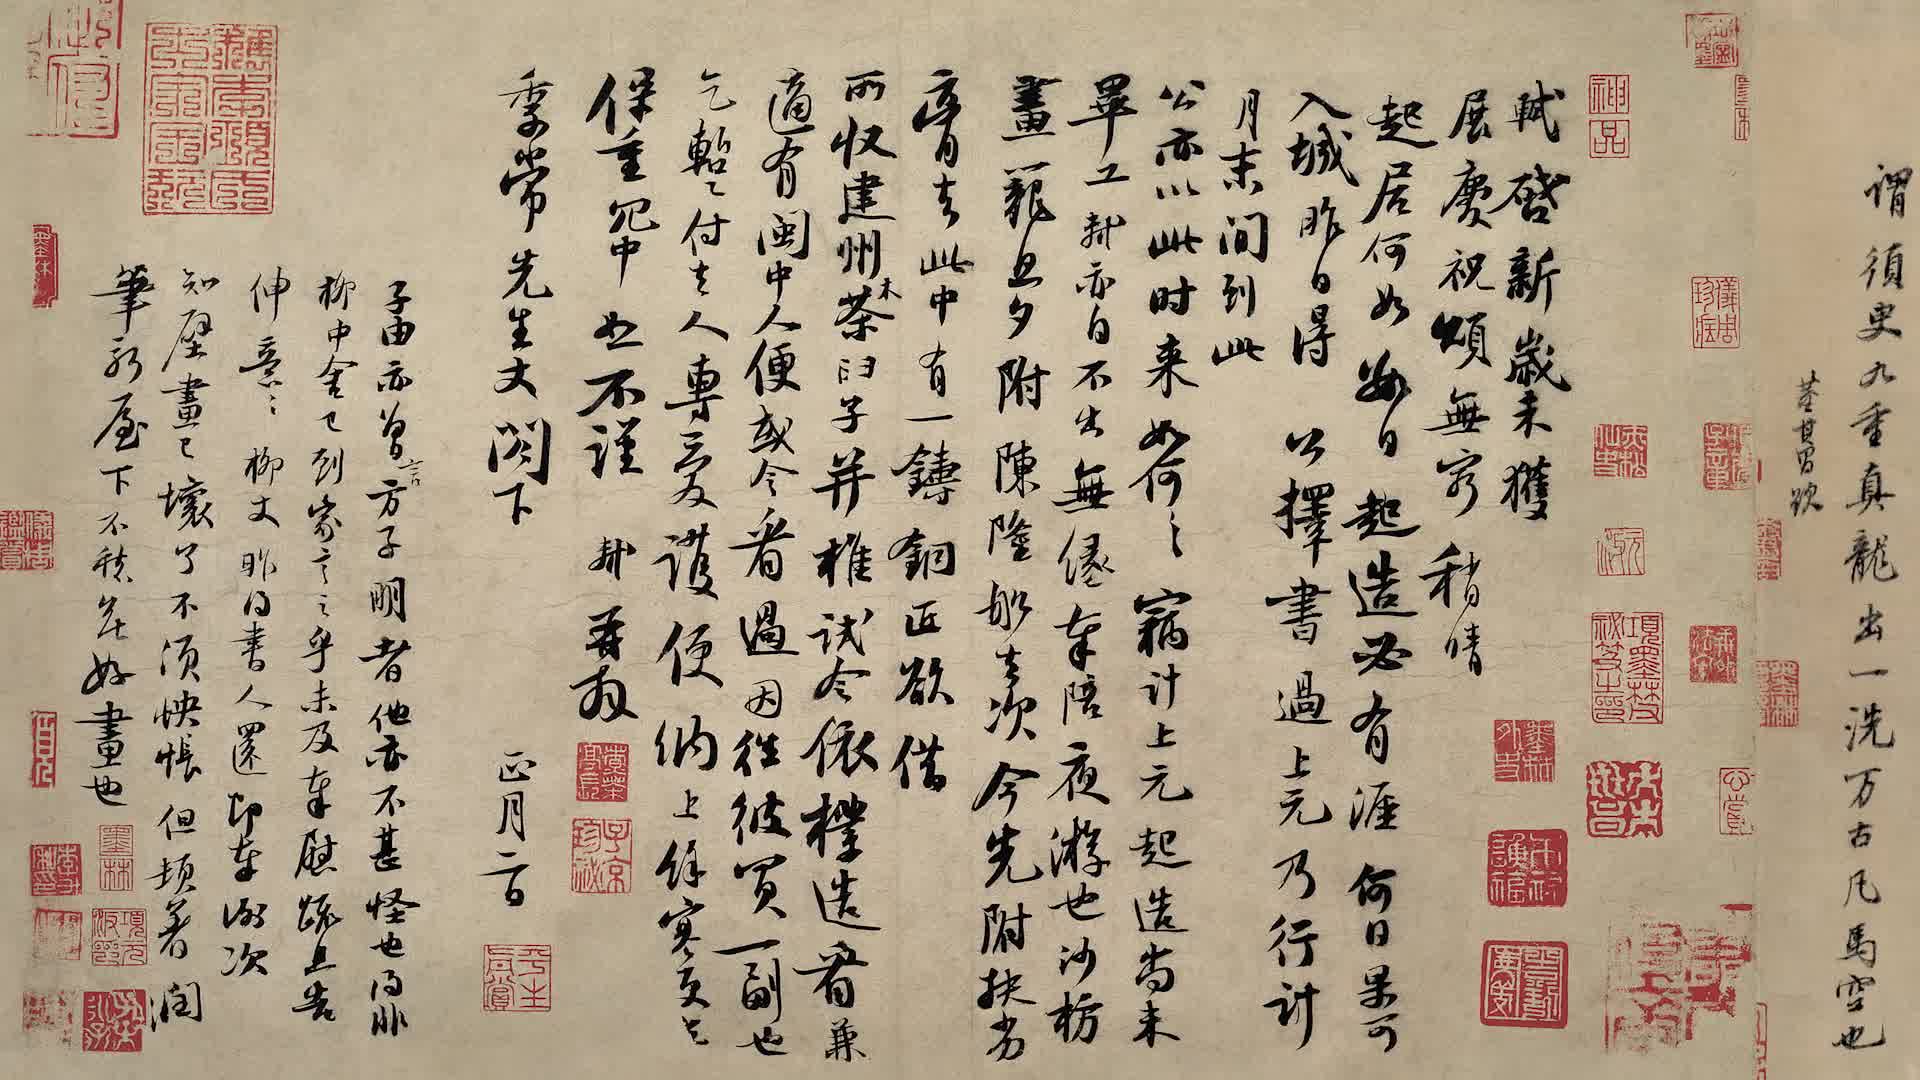 謂須臾九重真龍出一洗万古凡馬空也
董其昌跋
軾啓新歲未獲
展慶祝頌無窮稍晴
起居何如數日起造必有涯何日果可
入城昨日得公擇書過上元乃行計
月末間到此
公亦以此時来如何〻竊計上元起造尚未
畢工軾亦自不出無緣奉陪夜游也沙枋
畫籠旦夕附陳隆船去次今先附扶劣
膏去此中有一鑄銅匠欲借
所收建州木茶臼子并椎試令依樣造看兼
適有閩中人便或令看過因往彼買一副也
乞暫付去人專愛護便納上餘寒更乞
保重冗中恕不謹軾再拜
季常先生丈閤下
正月二日
子由亦曾言方子明者他亦不甚怪也得非
柳中舍已到家言之乎未及奉慰疏且告
伸意〻柳丈昨得書人還即奉謝次
知壁畫已壞了不須怏悵但頓著潤
筆新屋下不愁無好畫也
神品